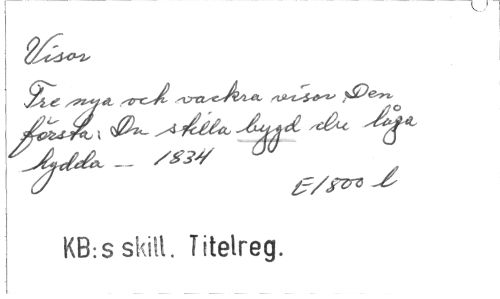 Visor
Tre nya och vackra visor. Den
första: Du stilla bygd du låga
hydda — 1834
E1800 l
KB:s skill. Titelreg.